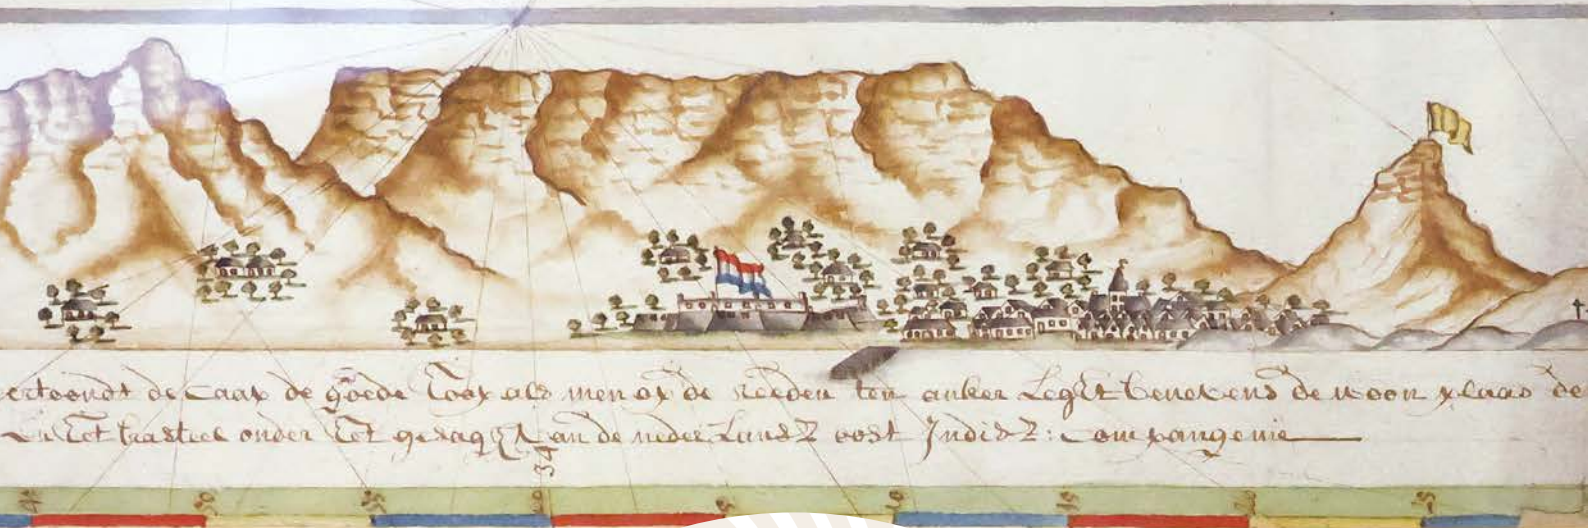 ertoondt de Caap de goede Hoop als men op de Reeden ten anker Leght benevens de woon plaas de
En het Casteel onder het gesagh van de neder Landz oost Indisz: Compangenie
34